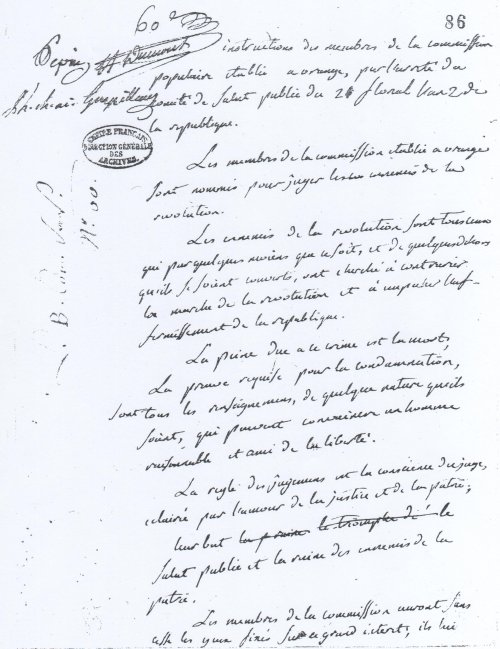 60e
86
Pépin
Dumont
instructions des membres de la commission
populaire établie a orange, par l'arreté du
comité de salut publie du 2 floreal l'an 2 de
la république.
CENTRE FRANÇAIS
DIRECTION GÉNÉRALE
DES
ARCHIVES
Les membres de la commission établie a orange
sont nommés pour juger les ennemis de la
revolution.
Les ennemis de la revolution sont tous ceux
qui par quelques moiens que ce soit, et de quelques dehors
qu'ils se soient couverts, ont cherché a contrarier
la marche de la revolution et a impecher l'af-
fermissement de la republique.
La peine due a ce crime est la mort,
La preuve requise pour la condamnation,
sont tous les renseignemens, de quelque nature qu'ils
soient, qui peuvent convaincre un homme
raisonnable et ami de la liberté.
La regle des jugemens est la conscience du juge,
eclairé par l'amour de la justice et de la patrie;
leur but la ruine le triomphe de le
salut publie et la ruine des ennemis de la
patrie.
Les membres de la commission auront sans
cesse les yeux fixés sur ce grand interet, ils lui